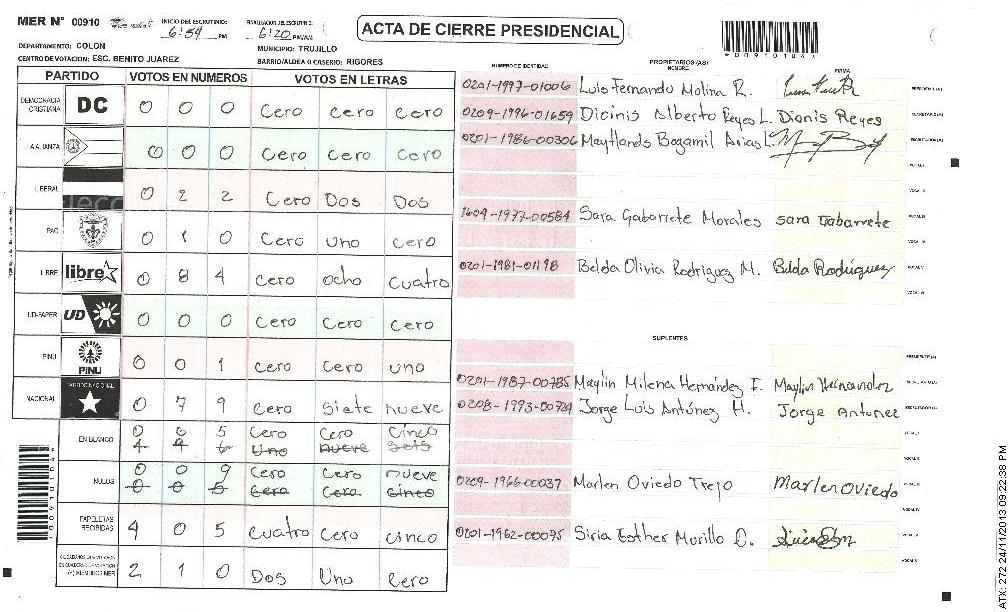 MER N° 00910
INICIO DEL ESCRUTINIO: 6:54 PM
FINALIZACION DEL ESCRUTINIO: 6:20 PM/AM
ACTA DE CIERRE PRESIDENCIAL
*00910104*
DEPARTAMENTO: COLON
MUNICIPIO: TRUJILLO
CENTRO DE VOTACION: ESC. BENITO JUAREZ
BARRIO/ALDEA O CASERIO: RIGORES
PARTIDO VOTOS EN NUMEROS VOTOS EN LETRAS
DEMOCRACIA CRISTIANA DC 0 0 0 Cero cero cero
A.ALIANZA 0 0 0 Cero cero cero
LIBERAL 0 2 2 Cero Dos Dos
PAC 0 1 0 Cero uno cero
LIBRE libre 0 8 4 cero ocho cuatro
UD-FAPER UD 0 0 0 Cero Cero cero
PINU PINU 0 0 1 cero Cero uno
NACIONAL PARTIDO NACIONAL 0 7 9 Cero Siete nueve
EN BLANCO 0 0 5 Cero Cero Cinco
Uno nueve seis
NULOS 0 0 9 Cero Cero nueve
0 0 5 Cero Cero Cinco
PAPELETAS RECIBIDAS 4 0 5 cuatro cero cinco
2 1 0 Dos Uno cero
NUMERO DE IDENTIDAD
PROPIETARIOS (AS)
NOMBRE
FIRMA
0201-1997-01006 Luis Fernando Molina R. PRESIDENTE(A)
0209-1996-01659 Dionis Alberto Reyes L. Dionis Reyes SECRETARIO(A)
0201-1986-00306 Maytlands Bogamil Arias L. ESCRUTADOR(A)
VOCAL I
VOCAL II
1604-1977-00584 Sara Gabarrete Morales sara Gabarrete VOCAL III
VOCAL IV
0201-1981-01198 Belda Olivia Rodriguez M. Belda Rodriguez VOCAL V
VOCAL VI
SUPLENTES
PRESIDENTE(A)
0201-1987-00785 Maylin Milena Hernández F. Maylin Hernandez SECRETARIO(A)
0208-1993-00784 Jorge Luis Antúnez H. Jorge Antunez ESCRUTADOR(A)
VOCAL I
VOCAL II
0209-1966-00037 Marlen Oviedo Trejo Marlen Oviedo VOCAL III
VOCAL IV
0201-1962-00075 Siria Esther Murillo O. VOCAL V
VOCAL VI
*00910104*
ATX: 272 24/11/2013 09:22:38 PM